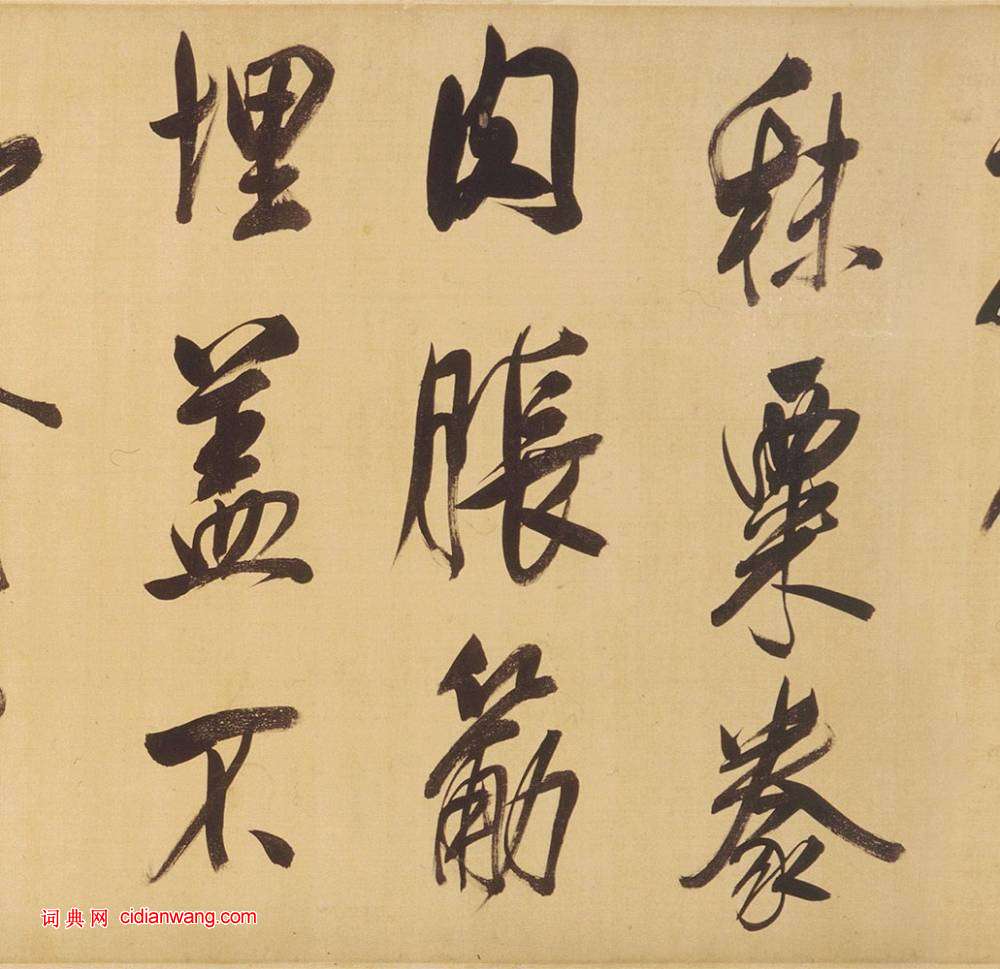 秣粟豢
肉脹筋
埋盖不
词典网 cidianwang.com